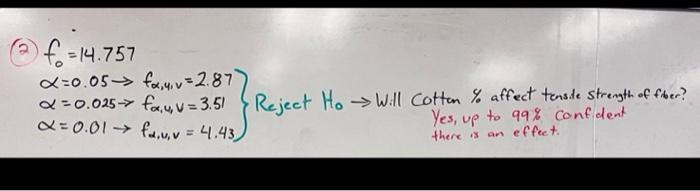 ② f₀ = 14.757
α=0.05 → fα,4,v = 2.87
α=0.025 → fα,4,v = 3.51
α=0.01 → fα,4,v = 4.43
} Reject H₀ → Will Cotton % affect tensile strength of fiber?
Yes, up to 99% confident
there is an effect.